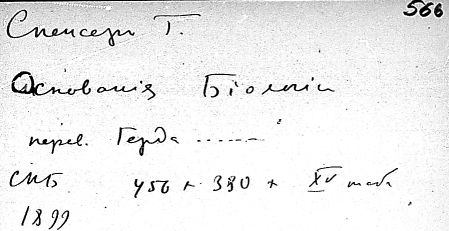 566
Спенсеръ Г.
Основанія Біологіи
перев. Герда ......
СПБ 456 + 380 + XV таб
1899